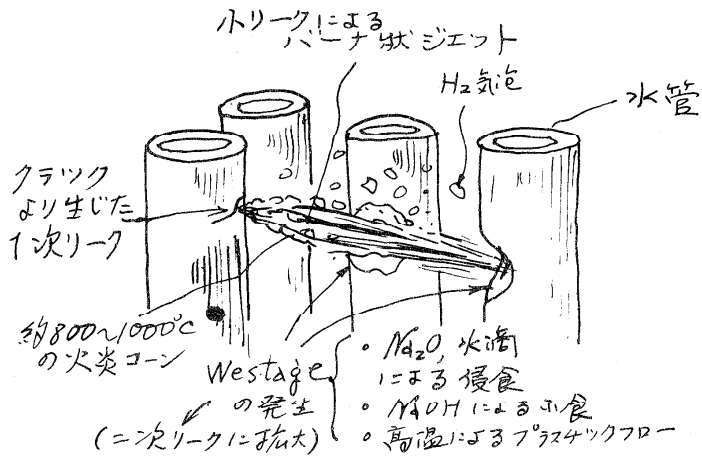 小リークによる
バーナ状ジェット
H₂気泡
水管
クラック
より生じた
1次リーク
約800~1000℃
の火炎コーン
Westage
の発生
(二次リークに拡大)
• Na₂O, 水滴
による侵食
• NaOHによる
食
• 高温によるプラスチックフロー